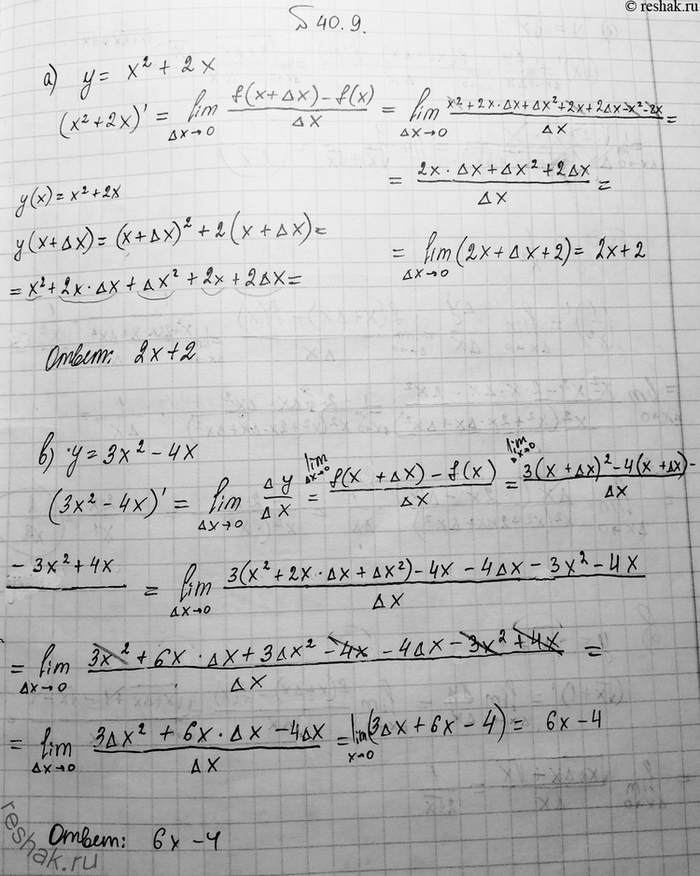 © reshak.ru
№40.9.
а) y = x² + 2x
(x² + 2x)' = lim Δx→0 (f(x+Δx) – f(x))/Δx = lim Δx→0 (x² + 2x·Δx + Δx² + 2x + 2Δx – x² – 2x)/Δx =
= (2x·Δx + Δx² + 2Δx)/Δx =
y(x) = x² + 2x
y(x+Δx) = (x+Δx)² + 2(x+Δx) =
= lim Δx→0 (2x + Δx + 2) = 2x + 2
= x² + 2x·Δx + Δx² + 2x + 2Δx =
Ответ: 2x + 2
в) y = 3x² – 4x
(3x² – 4x)' = lim Δx→0 Δy/Δx = lim Δx→0 (f(x + Δx) – f(x))/Δx = lim Δx→0 (3(x + Δx)² – 4(x + Δx) –
– 3x² + 4x = lim Δx→0 (3(x² + 2x·Δx + Δx²) – 4x – 4Δx – 3x² – 4x)/Δx
= lim Δx→0 (3x² + 6x·Δx + 3Δx² – 4x – 4Δx – 3x² + 4x)/Δx =
= lim Δx→0 (3Δx² + 6x·Δx – 4Δx)/Δx = lim x→0 (3Δx + 6x – 4) = 6x – 4
Ответ: 6x – 4
reshak.ru